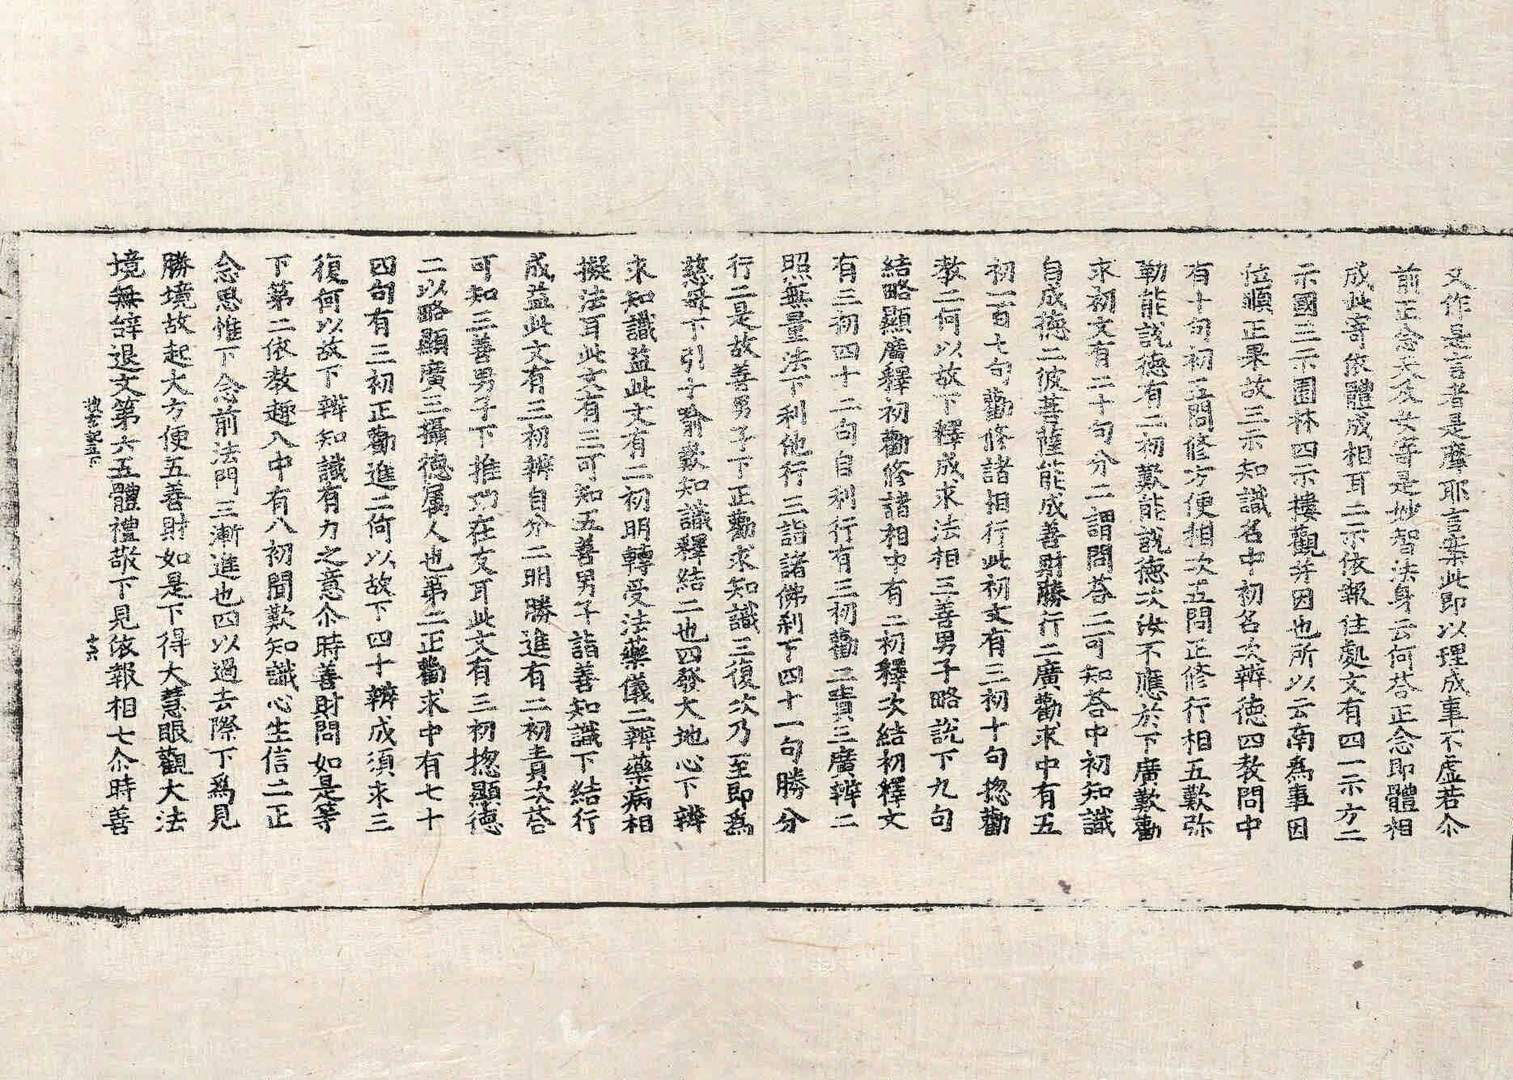 又作是言者是摩耶言案此即以理成事不虛若尒
前正念天及女等是妙智法身云何荅正念即體相
成此寄依體成相耳二示依報住處文有四一示方二
示國三示園林四示樓觀并因也所以云南為事因
位順正果故三示知識名中初名次辨德四教問中
有十句初五問修方便相次五問正修行相五歎弥
勒能說德有二初歎能說德次汝不應於下廣歎勸
求初文有二十句分二謂問荅二可知荅中初知識
自成德二彼菩薩能成善財勝行二廣勸求中有五
初一百七句勸修諸相行此初文有三初十句揔勸
教二何以故下釋成求法相三善男子略說下九句
結略顯廣釋初勸修諸相中有二初釋次結初釋文
有三初四十二句自利行有三初勸二責三廣辨二
照無量法下利他行三詣諸佛剎下四十一句勝分
行二是故善男子下正勸求知識三復次乃至即為
慈母下引子喻歎知識釋結二也四發大地心下辨
求知識益此文有二初明轉受法藥儀二辨藥病相
擬法耳此文有三可知五善男子詣善知識下結行
成益此文有三初辨自分二明勝進有二初責次荅
可知三善男子下推功在友耳此文有三初揔顯德
二以略顯廣三攝德属人也第二正勸求中有七十
四句有三初正勸進二何以故下四十辨成須求三
復何以故下辨知識有力之意尒時善財問如是等
下第二依教趣入中有八初聞歎知識心生信二正
念思惟下念前法門三漸進也四以過去際下為見
勝境故起大方便五善財如是下得大慧眼觀大法
境無辞退文第六五體禮敬下見依報相七尒時善
搜玄記五下 十六